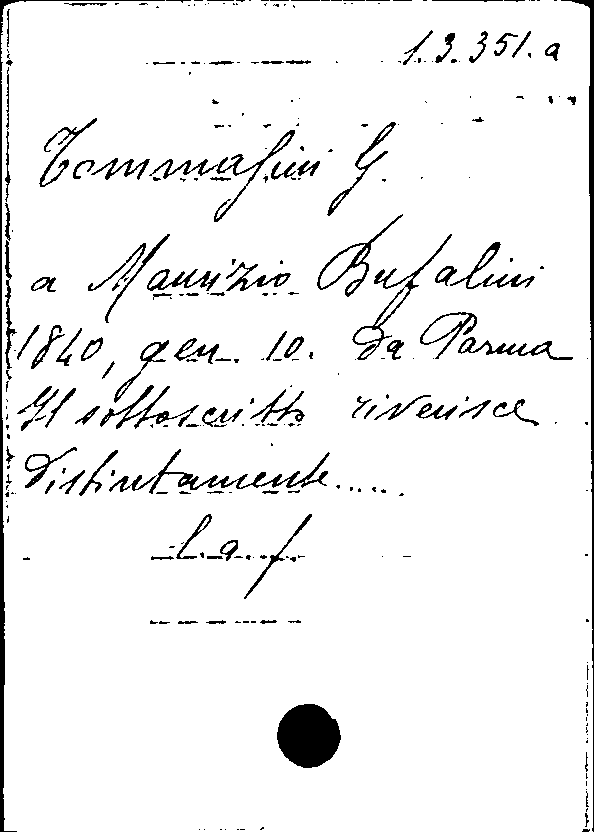 1.3.351.a
Tommasini G.
a Maurizio Bufalini
1840, gen. 10. da Parma
Il sottoscritto riverisce
distintamente.....
l.a.f.